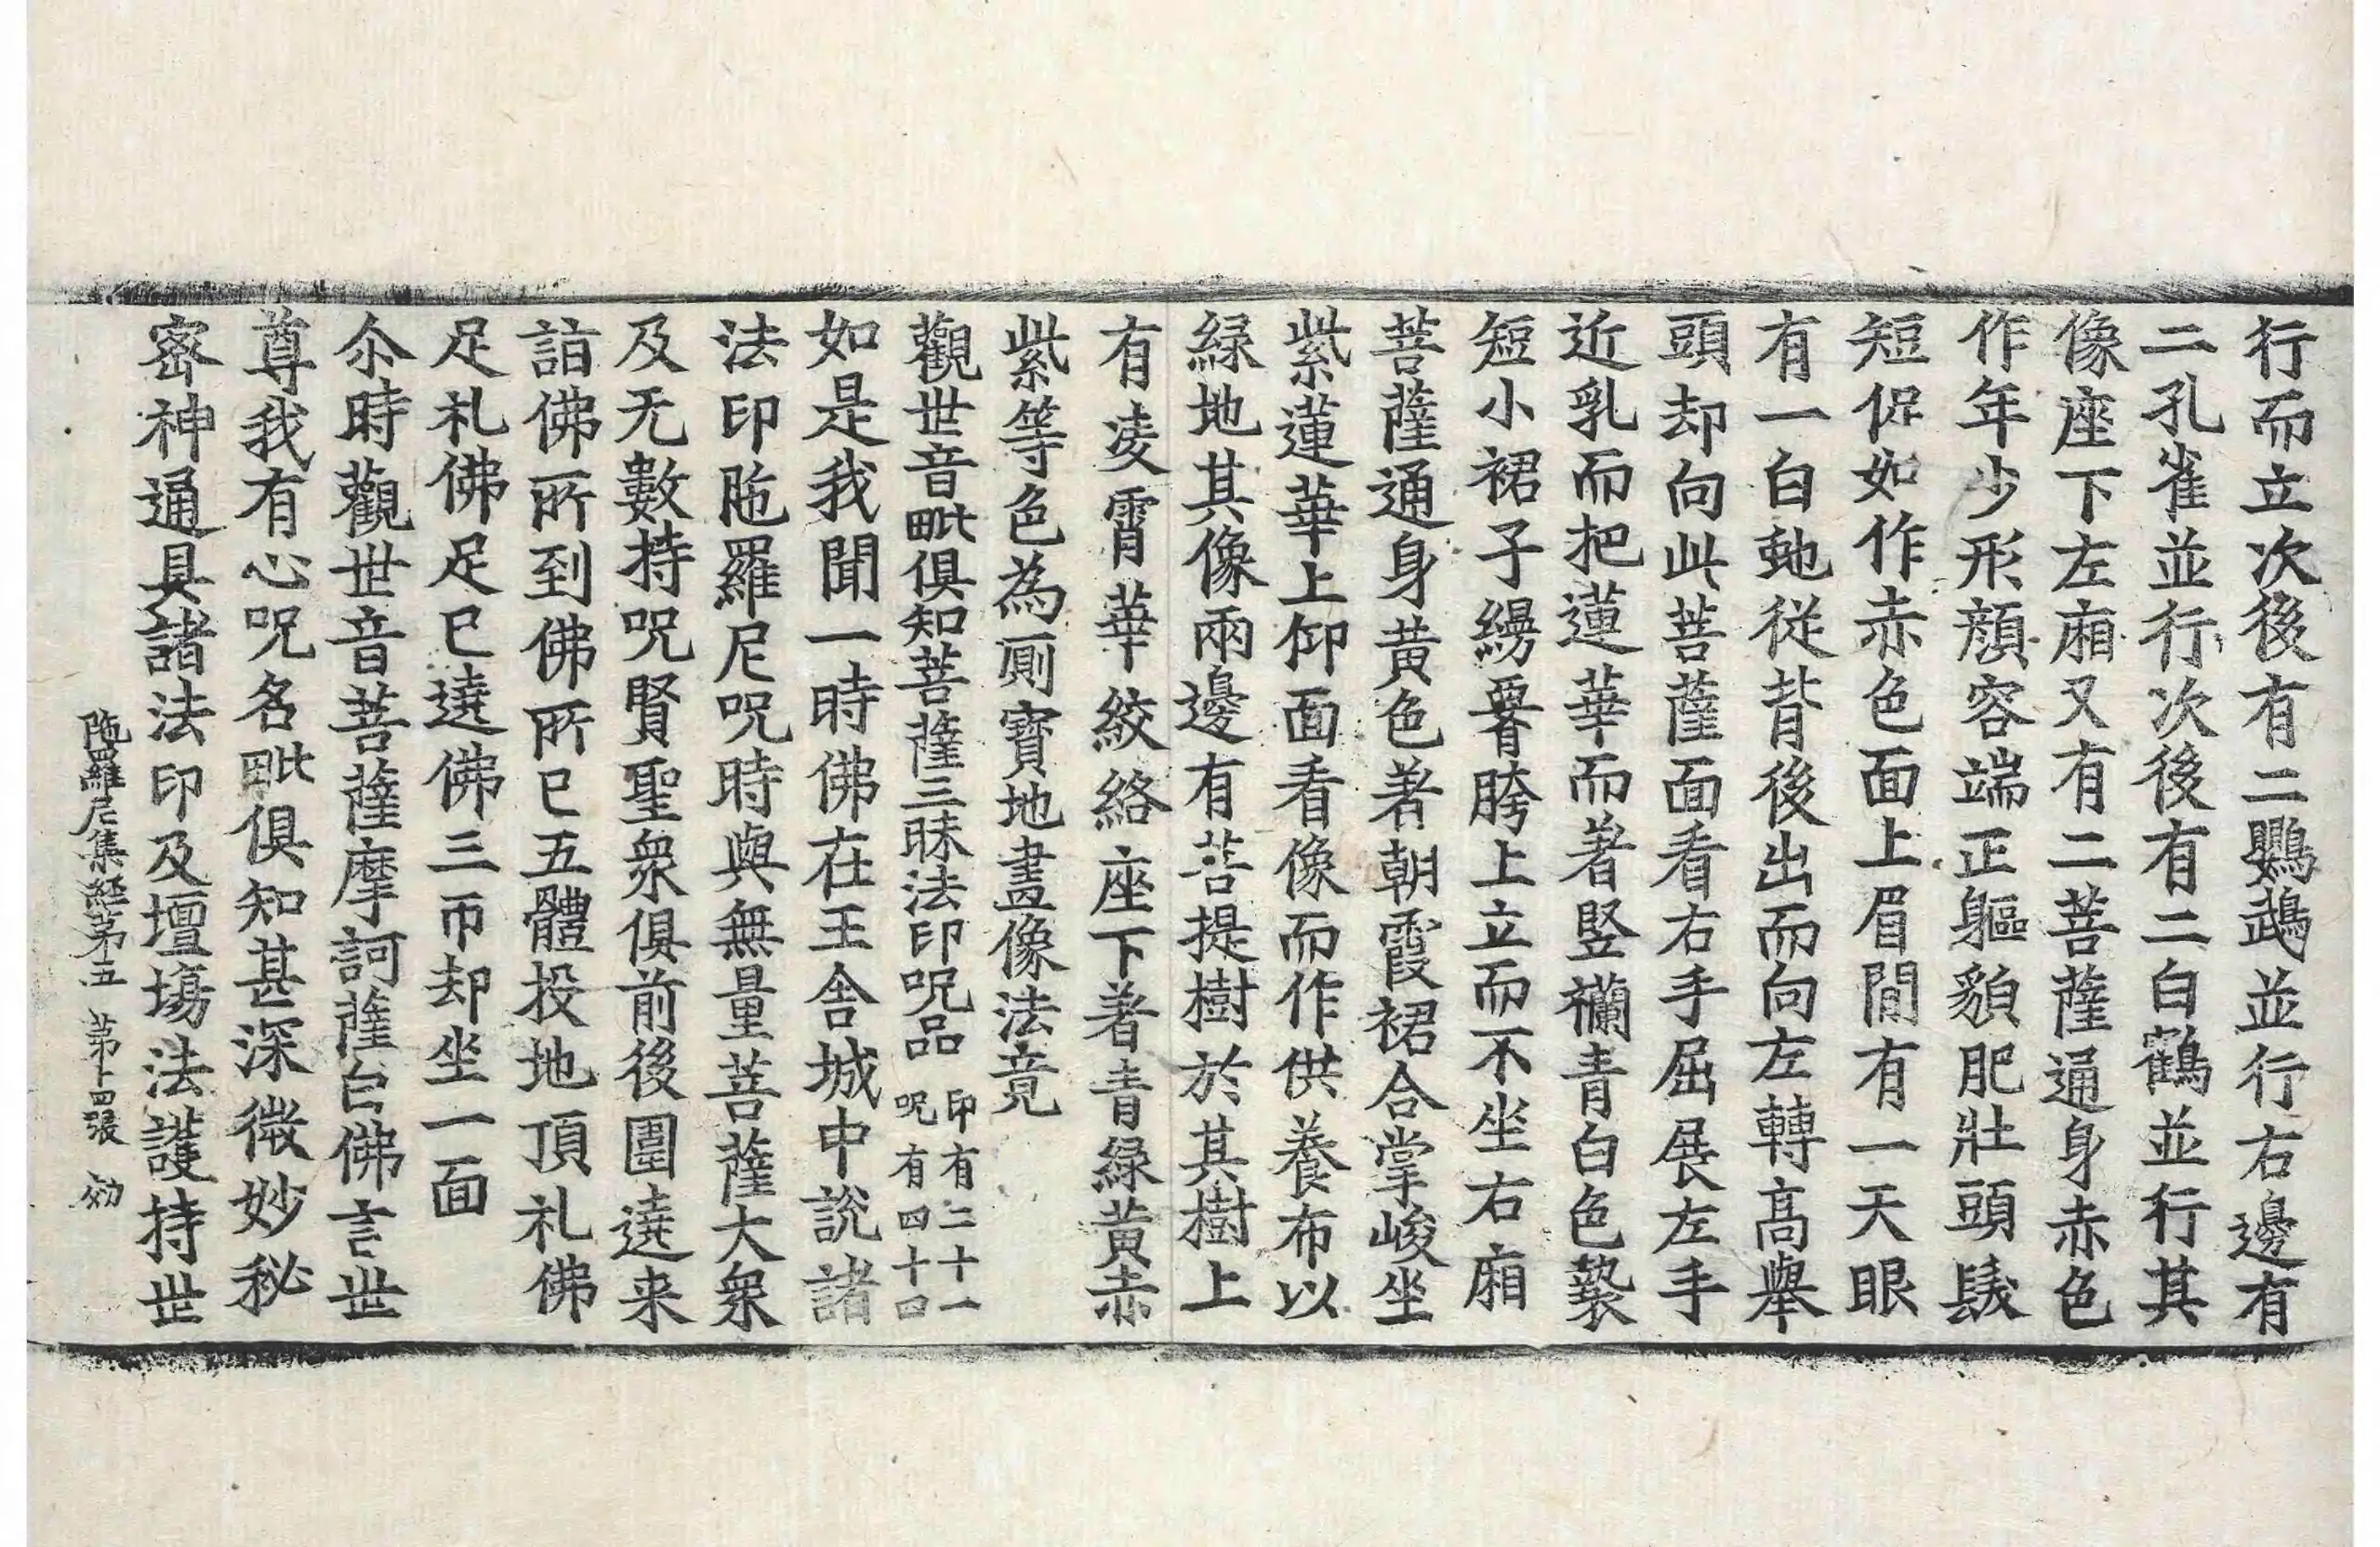 行而立次後有二鸚鵡並行右邊有
二孔雀並行次後有二白鶴並行其
像座下左廂又有二菩薩通身赤色
作年少形顏容端正軀貌肥壯頭髮
短促如作赤色面上眉間有一天眼
有一白虵從背後出而向左轉高舉
頭却向此菩薩面看右手屈展左手
近乳而把蓮華而著竪襴青白色褺
短小裙子繓署胯上立而不坐右廂
菩薩通身黃色著朝霞裙合掌峻坐
紫蓮華上仰面看像而作供養布以
緑地其像兩邊有菩提樹於其樹上
有凌霄華絞絡座下著青緑黃赤
紫等色為厠寶地畫像法竟
觀世音毗俱知菩薩三昧法印呪品 印有二十一 呪有四十四
如是我聞一時佛在王舍城中說諸
法印陁羅尼呪時與無量菩薩大衆
及无數持呪賢聖衆俱前後圍遶来
詣佛所到佛所已五體投地頂礼佛
足礼佛足已遶佛三帀却坐一面
尒時觀世音菩薩摩訶薩白佛言世
尊我有心呪名毗俱知甚深微妙秘
密神通具諸法印及壇塲法護持世
陁羅尼集經第五 第十四張 効